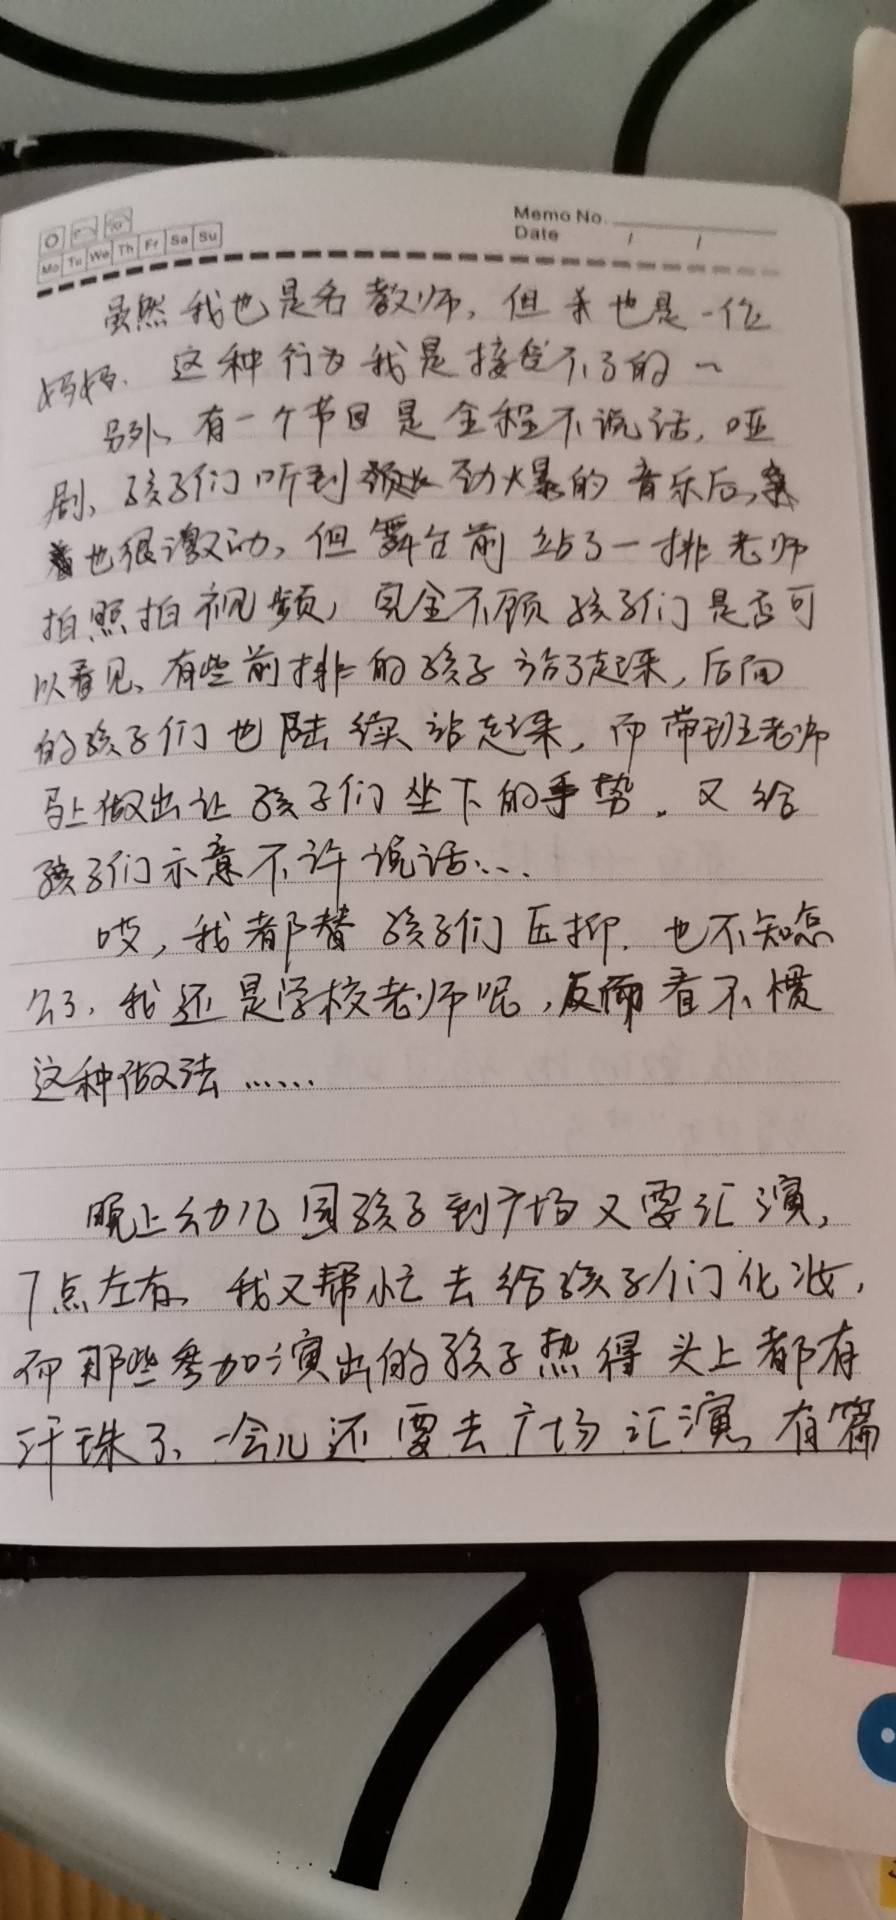 Memo No.
Date / /
Mo Tu We Th Fr Sa Su
虽然我也是名教师，但我也是一位
妈妈．这种行为我是接受不了的～
另外、有一个节目是全程不说话，哑
剧、孩子们听到劲爆的音乐后、
也很激动、但舞台前站了一排老师
拍照拍视频，完全不顾孩子们是否可
以看见、有些前排的孩子站了起来，后面
的孩子们也陆续站起来，而带班老师
马上做出让孩子们坐下的手势．又给
孩子们示意不许说话...
哎，我都替孩子们压抑．也不知怎
么了．我还是学校老师呢，反而看不惯
这种做法……
晚上幼儿园孩子到广场又要汇演，
7点左右、我又帮忙去给孩子们化妆，
而那些参加演出的孩子热得头上都有
汗珠了、一会儿还要去广场汇演、有篇